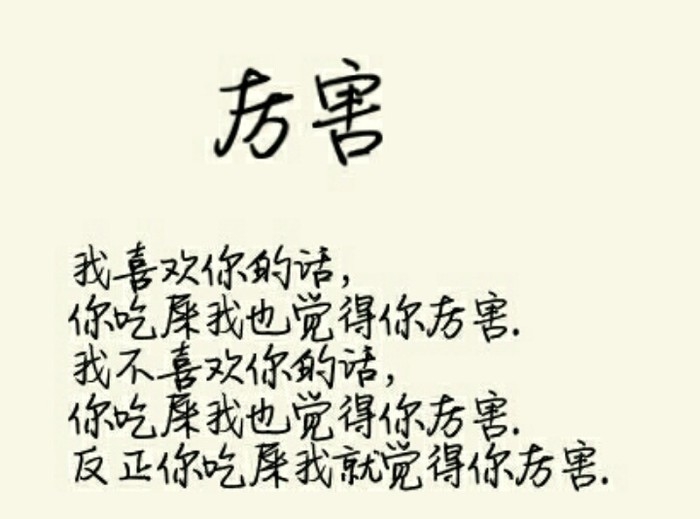 厉害
我喜欢你的话，
你吃屎我也觉得你厉害.
我不喜欢你的话，
你吃屎我也觉得你厉害.
反正你吃屎我就觉得你厉害.